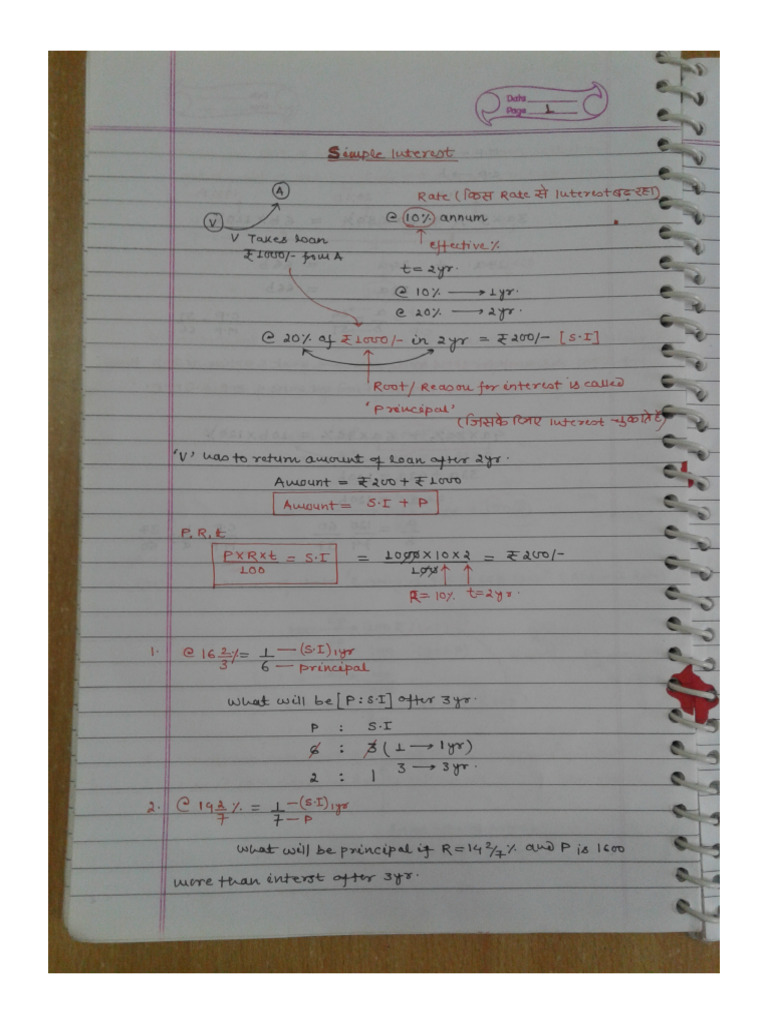 Date
Page 1
Simple Interest
A
Rate (किस Rate से Interest बढ़ रहा)
V
@ 10% annum
V Takes loan
₹1000/- from A
effective %
t = 2yr.
@ 10% → 1yr.
@ 20% → 2yr.
@ 20% of ₹1000/- in 2yr = ₹200/- [S.I]
Root/Reason for interest is called
'Principal'
(जिसके लिए Interest चुकाते हैं)
'V' has to return amount of loan after 2yr.
Amount = ₹200 + ₹1000
Amount = S.I + P
P, R, t
P×R×t/100 = S.I = 1000×10×2/100 = ₹200/-
R = 10% t = 2yr.
1. @ 16 2/3 % = 1/6 — (S.I)1yr
— principal
What will be [P : S.I] after 3yr.
P : S.I
6 : 3 (1 → 1yr)
3 → 3yr.
2 : 1
2. @ 14 2/7 % = 1/7 — (S.I)1yr
— P
What will be principal if R = 14 2/7 % and P is 1600
more than interst after 3yr.